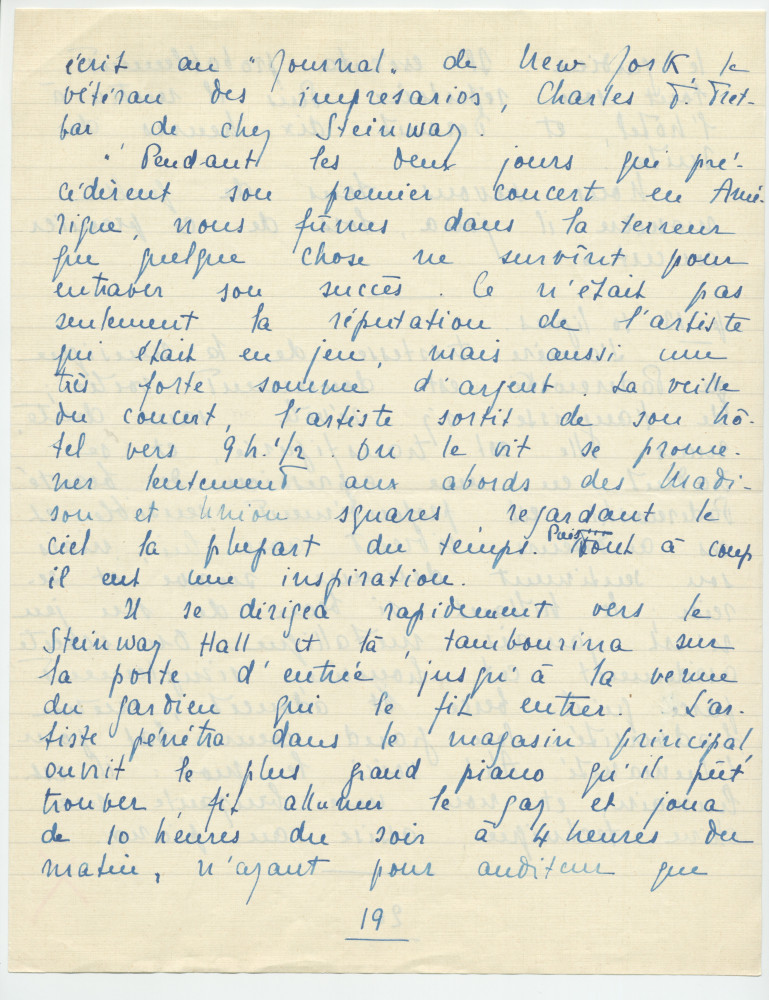 écrit au "Journal" de New York, le
vétéran des impresarios, Charles F. Tret-
bar de chez Steinway.
" Pendant les deux jours qui pré-
cédèrent son premier concert en Amé-
rique, nous fûmes dans la terreur
que quelque chose ne survînt pour
entraver son succès. Ce n'était pas
seulement la réputation de l'artiste
qui était en jeu, mais aussi une
très forte somme d'argent. La veille
du concert, l'artiste sortit de son hô-
tel vers 9h.1/2. On le vit se prome-
ner lentement aux abords des Madi-
son et Union squares regardant le
ciel la plupart du temps. Puis tout à coup
il eut une inspiration.
Il se dirigea rapidement vers le
Steinway Hall et là tambourina sur
la porte d'entrée jusqu'à la venue
du gardien qui le fit entrer. L'ar-
tiste pénétra dans le magasin principal
ouvrit le plus grand piano qu'il pût
trouver fit allumer le gaz et joua
de 10 heures du soir à 4 heures du
matin, n'ayant pour auditeur que
19